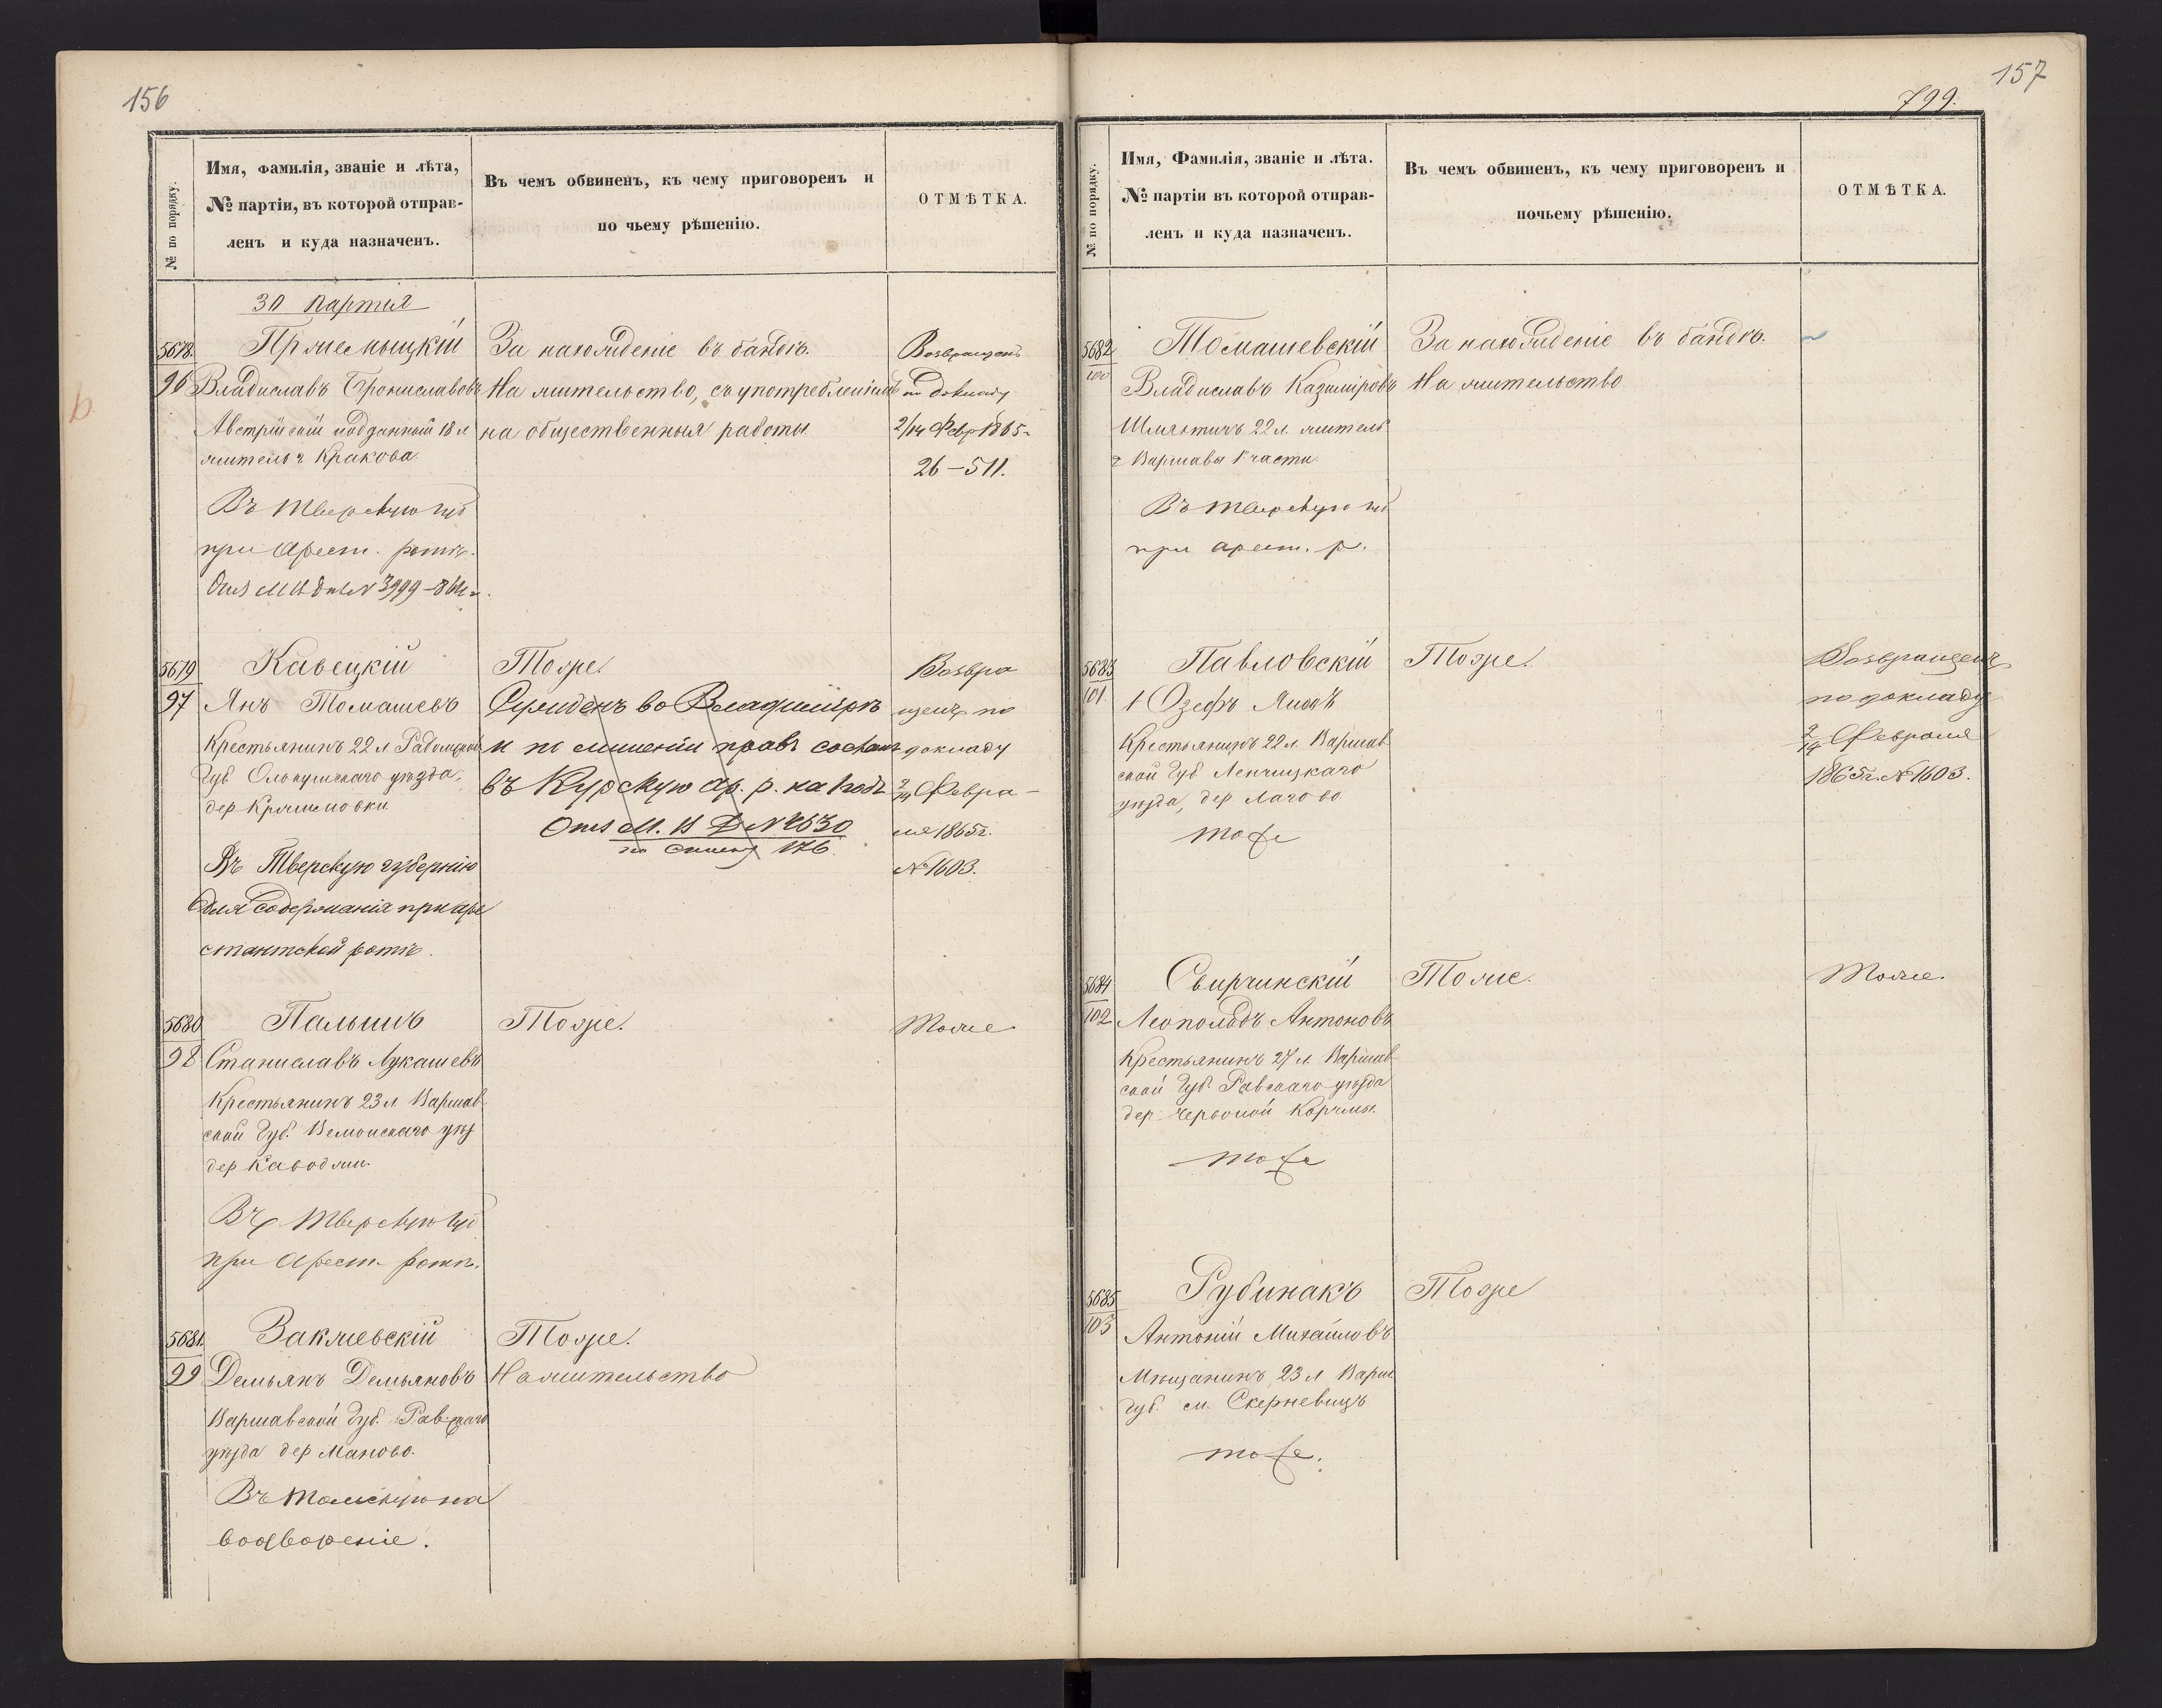 156
№ по порядку.
Имя, фамилія, званіе и лѣта,
№ партіи, въ которой отправ-
ленъ и куда назначенъ.
Въ чемъ обвиненъ, къ чему приговоренъ и
по чьему рѣшенію.
ОТМѢТКА.
30 партія
5678.
96
Пржемыцкій
Владиславъ Брониславовъ
Австрійскій подданный 18 л
житель г Кракова
Въ Тверскую губ
при Арест. ротѣ.
За нахожденіе въ бандѣ.
На жительство, съ употребленіемъ
на общественныя работы
Возвращенъ
по докладу
2/14 Февр 1865
26–511.
5679
97
Кавецкій
Янъ Томашевъ
Крестьянинъ 22 л Радомской
Губ Олькушскаго уѣзда,
дер Кржимовки
Въ Тверскую губернію
для содержанія при аре
стантской ротѣ.
Тоже.
Сужденъ во Владимірѣ
и по лишеніи правъ состоян
въ Курскую ар. р. на годъ
Отз М. В Д № 2630
по списку 176.
Возвра
щенъ по
докладу
2/14 Февра-
ля 1865г.
№ 1603.
5680
98
Пальшъ
Станиславъ Лукашевъ
Крестьянинъ 23 л Варшав
ской Губ. Велюнскаго уѣз
Въ Тверскую губ
при Арест ротѣ.
Тоже.
Тоже
5681.
99
Закжевскій
Демьянъ Демьяновъ
Варшавской Губ. Равскаго
уѣзда дер Маново.
Въ Томскую на
водвореніе.
Тоже.
На жительство
157
799.
№ по порядку.
Имя, Фамилія, званіе и лѣта.
№ партіи въ которой отправ-
ленъ и куда назначенъ.
Въ чемъ обвиненъ, къ чему приговоренъ и
почьему рѣшенію.
ОТМѢТКА.
5682
100
Томашевскій
Владиславъ Казиміровъ
Шляхтичъ 22 л. житель
г Варшавы 1 части.
Въ Тверскую губ
при арест. р.
За нахожденіе въ бандѣ.
На жительство
5683
101
Павловскій
Іозефъ
Крестьянинъ 22 л. Варшав
ской Губ Ленчицкаго
уѣзда, дер Лагово
тоже
Тоже.
Возвращенъ
по докладу
2/14 Февраля
1865г. № 1603.
5684
102
Свирчинскій
Леопольдъ Антоновъ
Крестьянинъ 27 л Варшав
ской Губ. Равскаго уѣзда
дер Червоной Корчмы.
тоже
Тоже.
Тоже.
5685
103
Рубинакъ
Антоній Михайловъ
Мѣщанинъ 23 л Варш
Губ. м. Скерневицъ
тоже.
Тоже